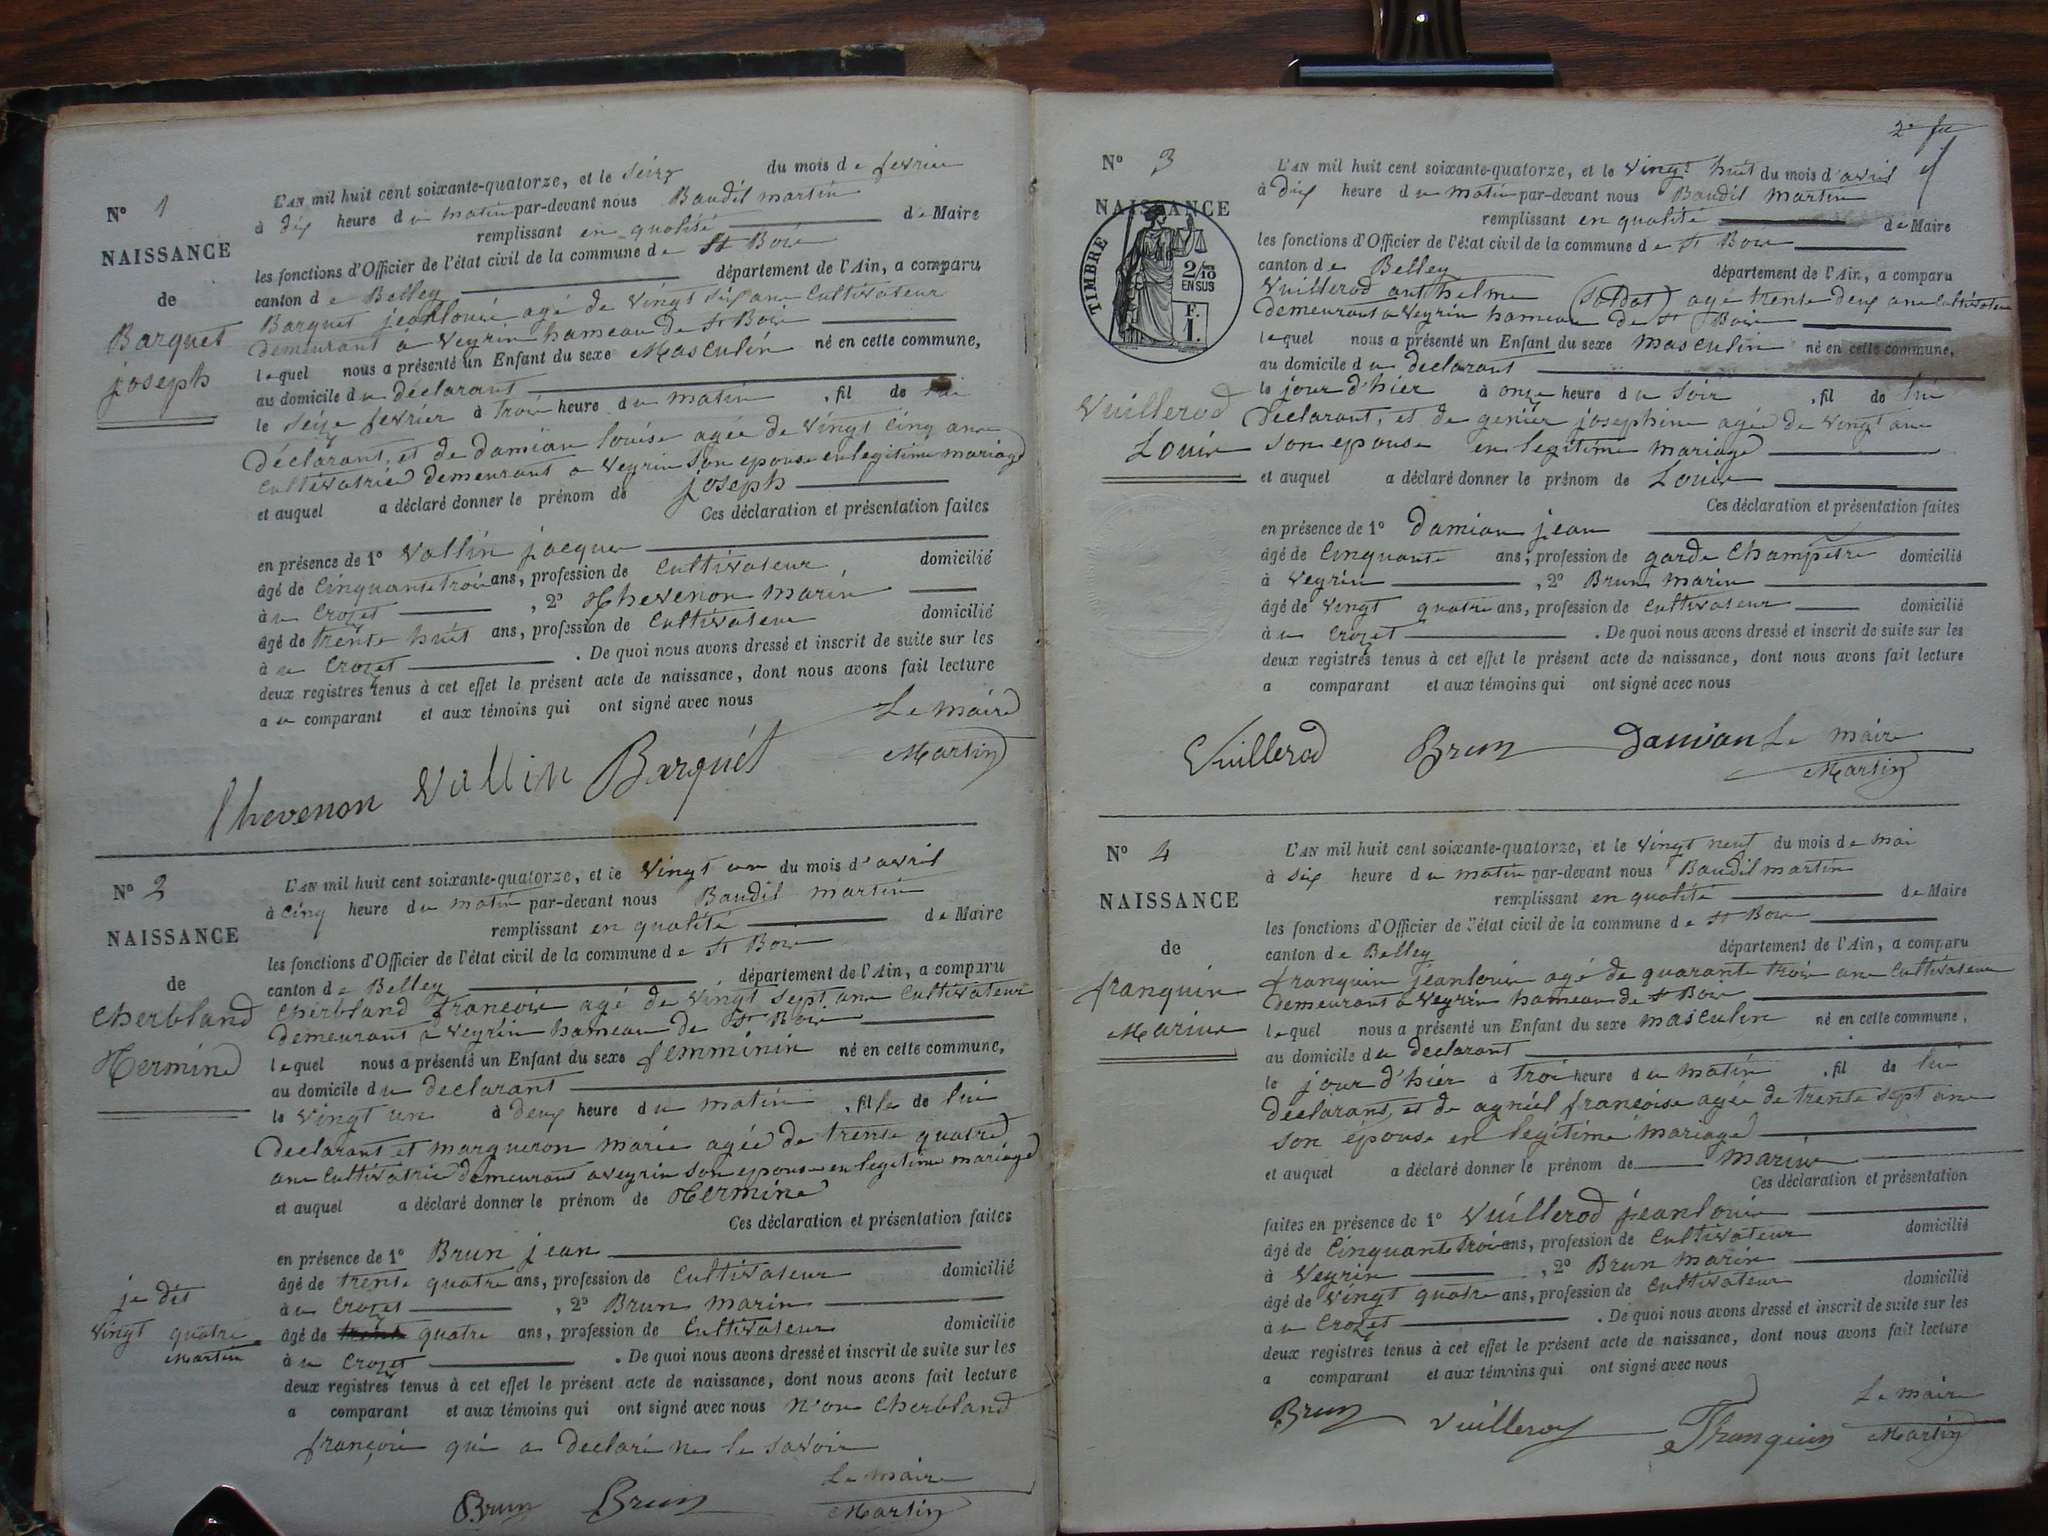 N° 1
NAISSANCE
de
Barquet
joseph
L'AN mil huit cent soixante-quatorze, et le seize du mois de fevrier
à dix heure du matin par-devant nous Baudil martin
remplissant en qualité de Maire
les fonctions d'Officier de l'état civil de la commune de St Bois
canton de Belley département de l'Ain, a comparu
Barquet jeanlouis agé de vingt six ans Cultivateur
demeurant a Veyrin hameau de St Bois
lequel nous a présenté un Enfant du sexe Masculin né en cette commune,
au domicile du déclarant
le seize fevrier à trois heure du matin , fil de lui
déclarant, et de damian louise agée de vingt cinq ans
Cultivatrice demeurant a Veyrin son epouse en legitime mariage
et auquel a déclaré donner le prénom de joseph
Ces déclaration et présentation faites
en présence de 1° Vallin jacques
âgé de Cinquante trois ans, profession de Cultivateur domicilié
à u Crozet , 2° Thevenon marin
âgé de trente huit ans, profession de Cultivateur domicilié
à u Crozet . De quoi nous avons dressé et inscrit de suite sur les
deux registres tenus à cet effet le présent acte de naissance, dont nous avons fait lecture
a u comparant et aux témoins qui ont signé avec nous
Le maire
Thevenon Vallin Barquét Martin
N° 2
NAISSANCE
de
Cherbland
Hermine
L'AN mil huit cent soixante-quatorze, et le vingt un du mois d'avril
à Cinq heure du matin par-devant nous Baudil martin
remplissant en qualité de Maire
les fonctions d'Officier de l'état civil de la commune de St Bois
canton de Belley département de l'Ain, a comparu
Cherbland françois agé de vingt sept ans Cultivateur
demeurant a Veyrin hameau de St Bois
lequel nous a présenté un Enfant du sexe femminin né en cette commune,
au domicile du declarant
le vingt un à deux heure du matin , fille de lui
declarant et marqueron marie agée de trente quatre
ans Cultivatrice demeurant a Veyrin son epouse en legitime mariage
et auquel a déclaré donner le prénom de Hermine
Ces déclaration et présentation faites
en présence de 1° Brun jean
âgé de trente quatre ans, profession de Cultivateur domicilié
à u Crozet , 2° Brun marin
je dit
vingt quatre
Martin
âgé de trente quatre ans, profession de Cultivateur domicilié
à u Crozet . De quoi nous avons dressé et inscrit de suite sur les
deux registres tenus à cet effet le présent acte de naissance, dont nous avons fait lecture
a comparant et aux témoins qui ont signé avec nous n'on Cherbland
françois qui a declaré ne le savoir
Le maire
Brun Brun Martin
N° 3
NAISSANCE
de
TIMBRE
2/10
EN SUS
F.
1.
Vuillerod
Louis
L'AN mil huit cent soixante-quatorze, et le vingt huit du mois d'avril
à dix heure du matin par-devant nous Baudil martin
remplissant en qualité de Maire
les fonctions d'Officier de l'état civil de la commune de St Bois
canton de Belley département de l'Ain, a comparu
Vuillerod anthelme (Soldat) age trente deux ans Cultivateur
demeurant a Veyrin hameau de St Bois
lequel nous a présenté un Enfant du sexe masculin né en cette commune,
au domicile du declarant
le jour d'hier à onze heure du soir , fil de lui
déclarant, et de genier josephine agée de vingt ans
son epouse en legitime mariage
et auquel a déclaré donner le prénom de Louis
Ces déclaration et présentation faites
en présence de 1° damian jean
âgé de Cinquante ans, profession de garde Champetre domicilié
à Veyrin , 2° Brun marin
âgé de vingt quatre ans, profession de Cultivateur domicilié
à u Crozet . De quoi nous avons dressé et inscrit de suite sur les
deux registres tenus à cet effet le présent acte de naissance, dont nous avons fait lecture
a comparant et aux témoins qui ont signé avec nous
Vuillerod Brun Damian Le maire
Martin
N° 4
NAISSANCE
de
franquin
Marius
L'AN mil huit cent soixante-quatorze, et le vingt neuf du mois de mai
à six heure du matin par-devant nous Baudil martin
remplissant en qualité de Maire
les fonctions d'Officier de l'état civil de la commune de St Bois
canton de Belley département de l'Ain, a comparu
franquin jeanlouis agé de quarante trois ans Cultivateur
demeurant a Veyrin hameau de St Bois
lequel nous a présenté un Enfant du sexe masculin né en cette commune,
au domicile du declarant
le jour d'hier à trois heure du matin , fil de lui
declarant, et de agniel françoise agée de trente sept ans
son épouse en legitime mariage
et auquel a déclaré donner le prénom de marius
Ces déclaration et présentation
faites en présence de 1° Vuillerod jeanlouis
âgé de Cinquante trois ans, profession de Cultivateur domicilié
à Veyrin , 2° Brun marin
âgé de vingt quatre ans, profession de Cultivateur domicilié
à u Crozet . De quoi nous avons dressé et inscrit de suite sur les
deux registres tenus à cet effet le présent acte de naissance, dont nous avons fait lecture
a comparant et aux témoins qui ont signé avec nous
Le maire
Brun Vuillerod Franquin Martin